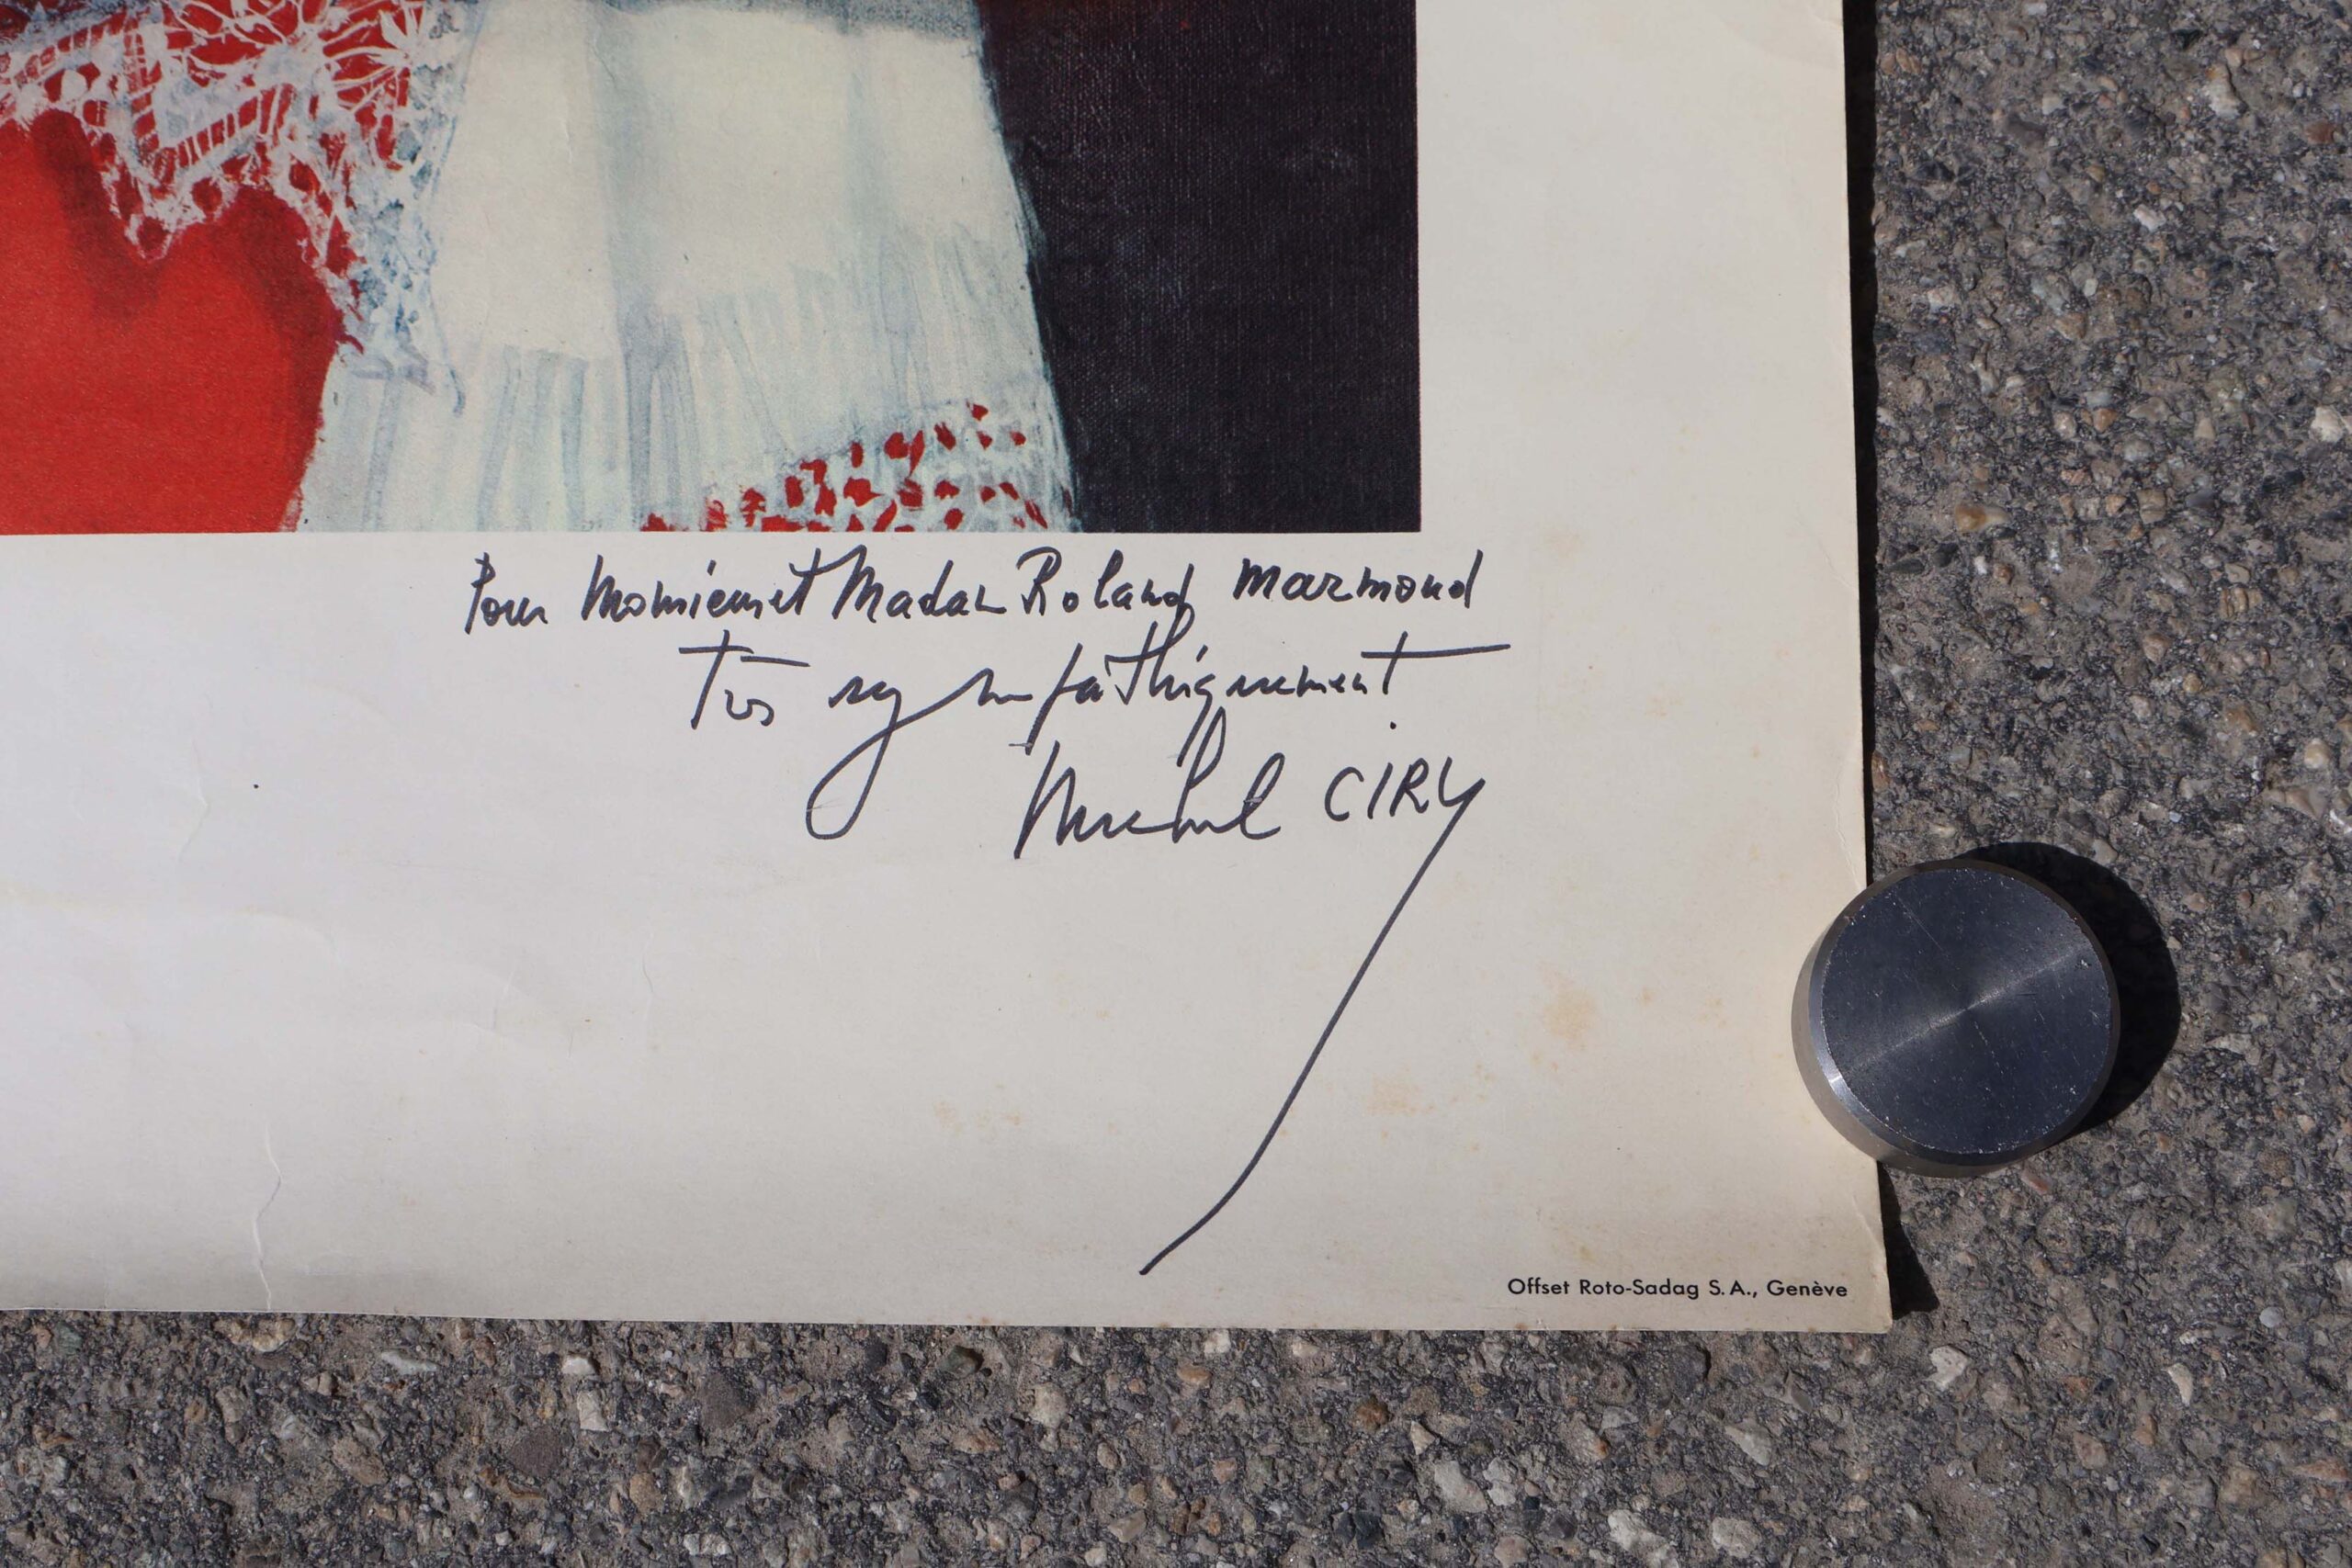 Pour Monsieur et Madame Roland Marmond
Très sympathiquement
Michel CIRY
Offset Roto-Sadag S.A., Genève